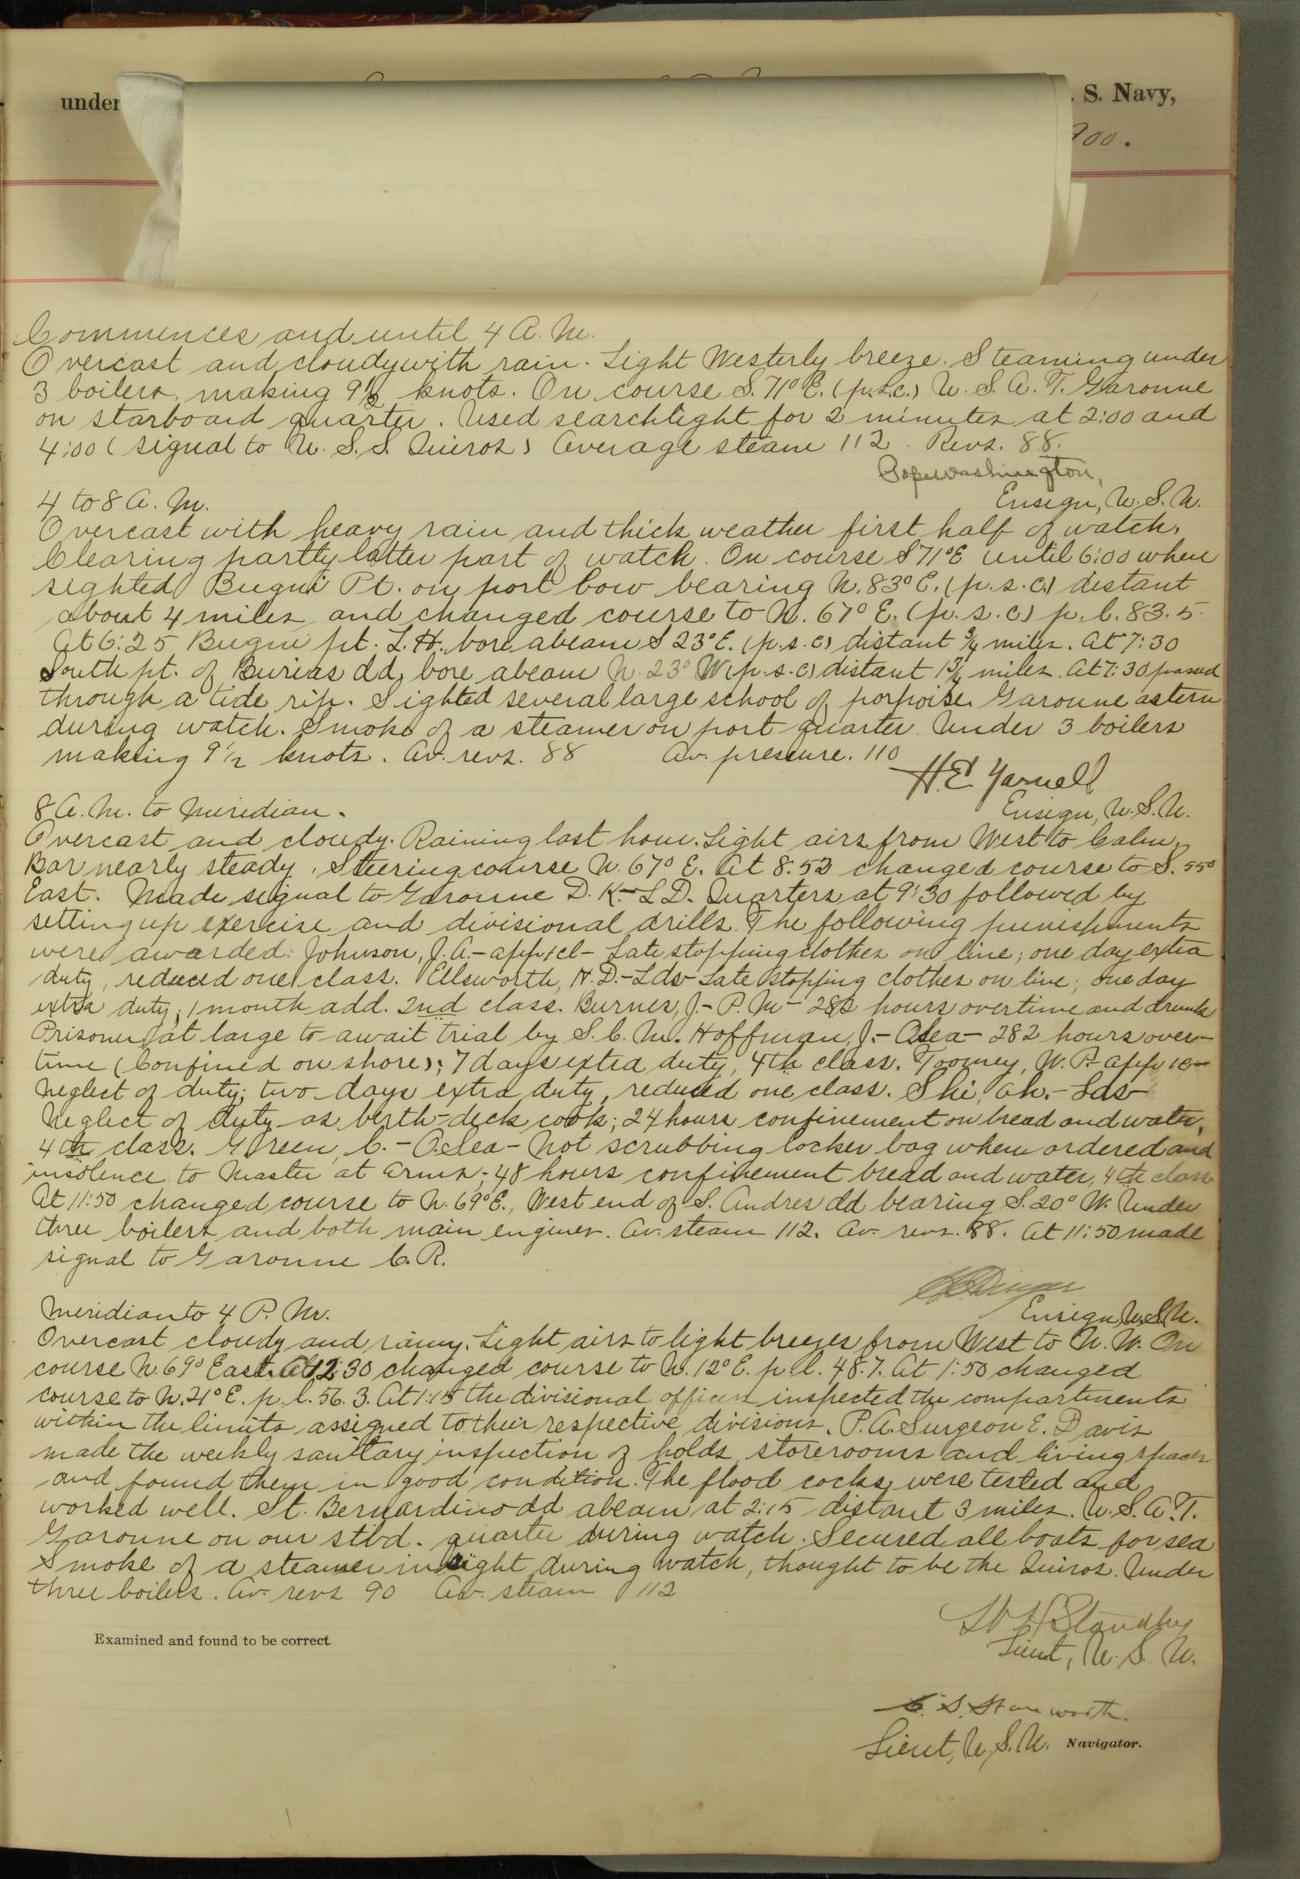 under
. S. Navy,
900.
Commences and until 4 A.M.
Overcast and cloudy with rain. Light Westerly breeze. Steaming under
3 boilers, making 9 1/2 knots. On course S. 71° E. (p.s.c.) U.S.A.T. Garonne
on starboard quarter. Used searchlight for 2 minutes at 2:00 and
4:00 (signal to U.S.S. Quiros) Average steam 112. Revs. 88.
Pope Washington,
4 to 8 A.M.
Ensign, U.S.N.
Overcast with heavy rain and thick weather first half of watch.
Clearing partly latter part of watch. On course S 71° E until 6:00 when
sighted Bugui Pt. on port bow bearing N. 83° E. (p.s.c.) distant
about 4 miles and changed course to N. 67° E. (p.s.c) p.l. 83.5
At 6:25 Bugui pt. L.H. bore abeam S 23° E. (p.s.c) distant miles. At 7:30
South pt. of Burias Id. bore abeam N. 23° W (p.s.c) distant miles. At 7:30 passed
through a tide rip. Sighted several large school of porpoise. Garonne astern
during watch. Smoke of a steamer on port quarter. Under 3 boilers
making 9 1/2 knots. Av. revs. 88 Av. pressure. 110
H.E. Yarnell
Ensign, U.S.N.
8 A.M. to Meridian.
Overcast and cloudy. Raining last hour. Light airs from West to Calm,
Bar nearly steady. Steering course N. 67° E. At 8:53 changed course to S. 55°
East. Made signal to Garonne D.K.-L.D. Quarters at 9:30 followed by
setting up exercise and divisional drills. The following punishments
were awarded: Johnson, J.A.- app 1cl- Late stopping clothes on line; one day extra
duty, reduced one class. Ellsworth, H.D.- Lds- Late stopping clothes on line; one day
extra duty, 1 month add. 2nd class. Burnes, J.- P.M- 282 hours overtime and drunk
Prisoner at large to await trial by S.C.M. Hoffman, J.- Osea- 282 hours over-
time (Confined on shore); 7 days extra duty, 4th class. Toomey, W.P. app 1c-
Neglect of duty; two days extra duty, reduced one class. Shi, Ah.- Lds-
Neglect of duty as berth-deck cook; 24 hours confinement on bread and water,
4th class. Green, C.- O.Sea- Not scrubbing locker bag when ordered and
insolence to Master at Arms; 48 hours confinement bread and water, 4th class
At 11:50 changed course to N. 69° E., West end of S. Andres Id bearing S. 20° W. Under
three boilers and both main engines. Av. steam 112. Av. revs. 88. At 11:50 made
signal to Garonne C.R.
Dinger
Ensign, U.S.N.
Meridian to 4 P.M.
Overcast cloudy and rainy. Light airs to light breezes from West to N.W. On
course N. 69° East. At 12:30 changed course to N. 12° E. p.l. 48.7. At 1:50 changed
course to N. 21° E. p.l. 56.3. At 1:15 the divisional officers inspected the compartments
within the limits assigned to their respective divisions. P.A. Surgeon E. Davis
made the weekly sanitary inspection of holds, storerooms and living spaces
and found them in good condition. The flood cocks were tested and
worked well. St. Bernardino Id abeam at 2:15 distant 3 miles. U.S.A.T.
Garonne on our stbd. quarter during watch. Secured all boats for sea
Smoke of a steamer in sight during watch, thought to be the Quiros. Under
three boilers. Av. revs 90 Av. steam 112
W H Standley
Lieut, U.S.N.
Examined and found to be correct
C. S. Stanworth.
Lieut, U.S.N. Navigator.